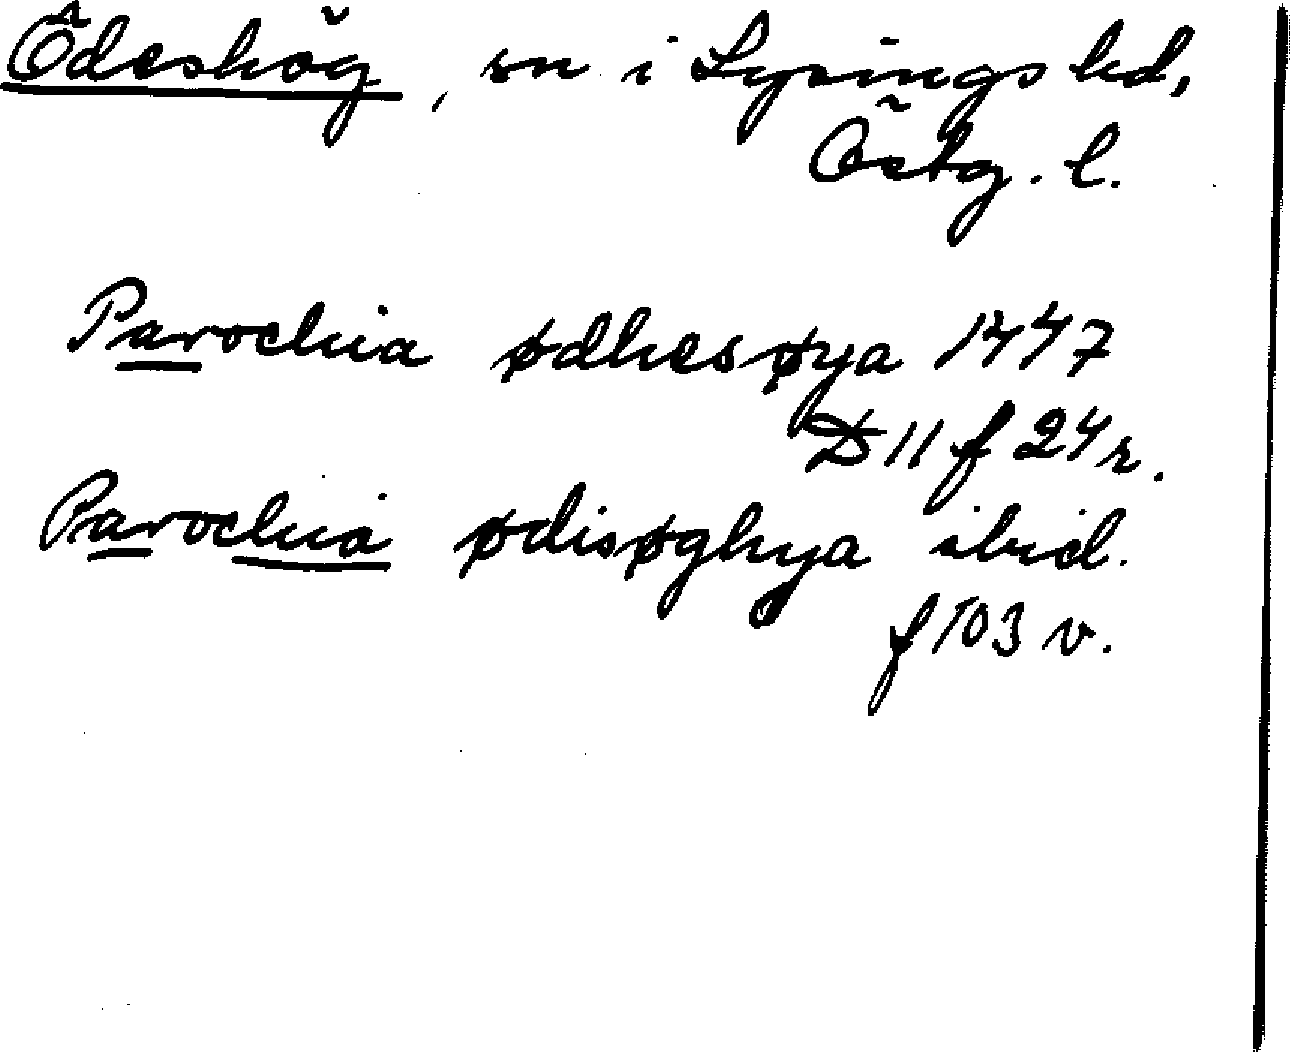 Ödeshög, sn i Lysings hd,
Östg. l.
Parochia ødhesøya 1447
D 11 f 24 r.
Parochia ødisøghya ibid.
f 103 v.